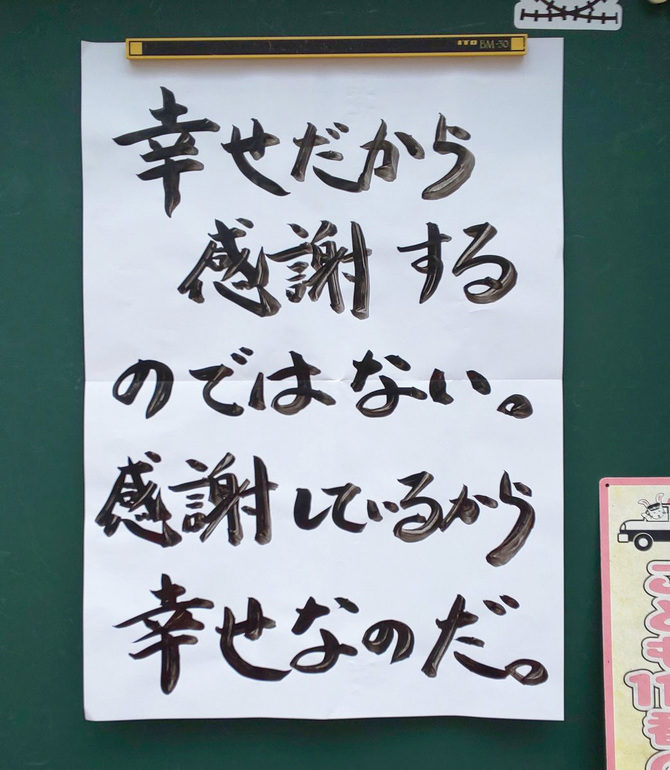 ITO BM-50
幸せだから
感謝する
のではない。
感謝しているから
幸せなのだ。